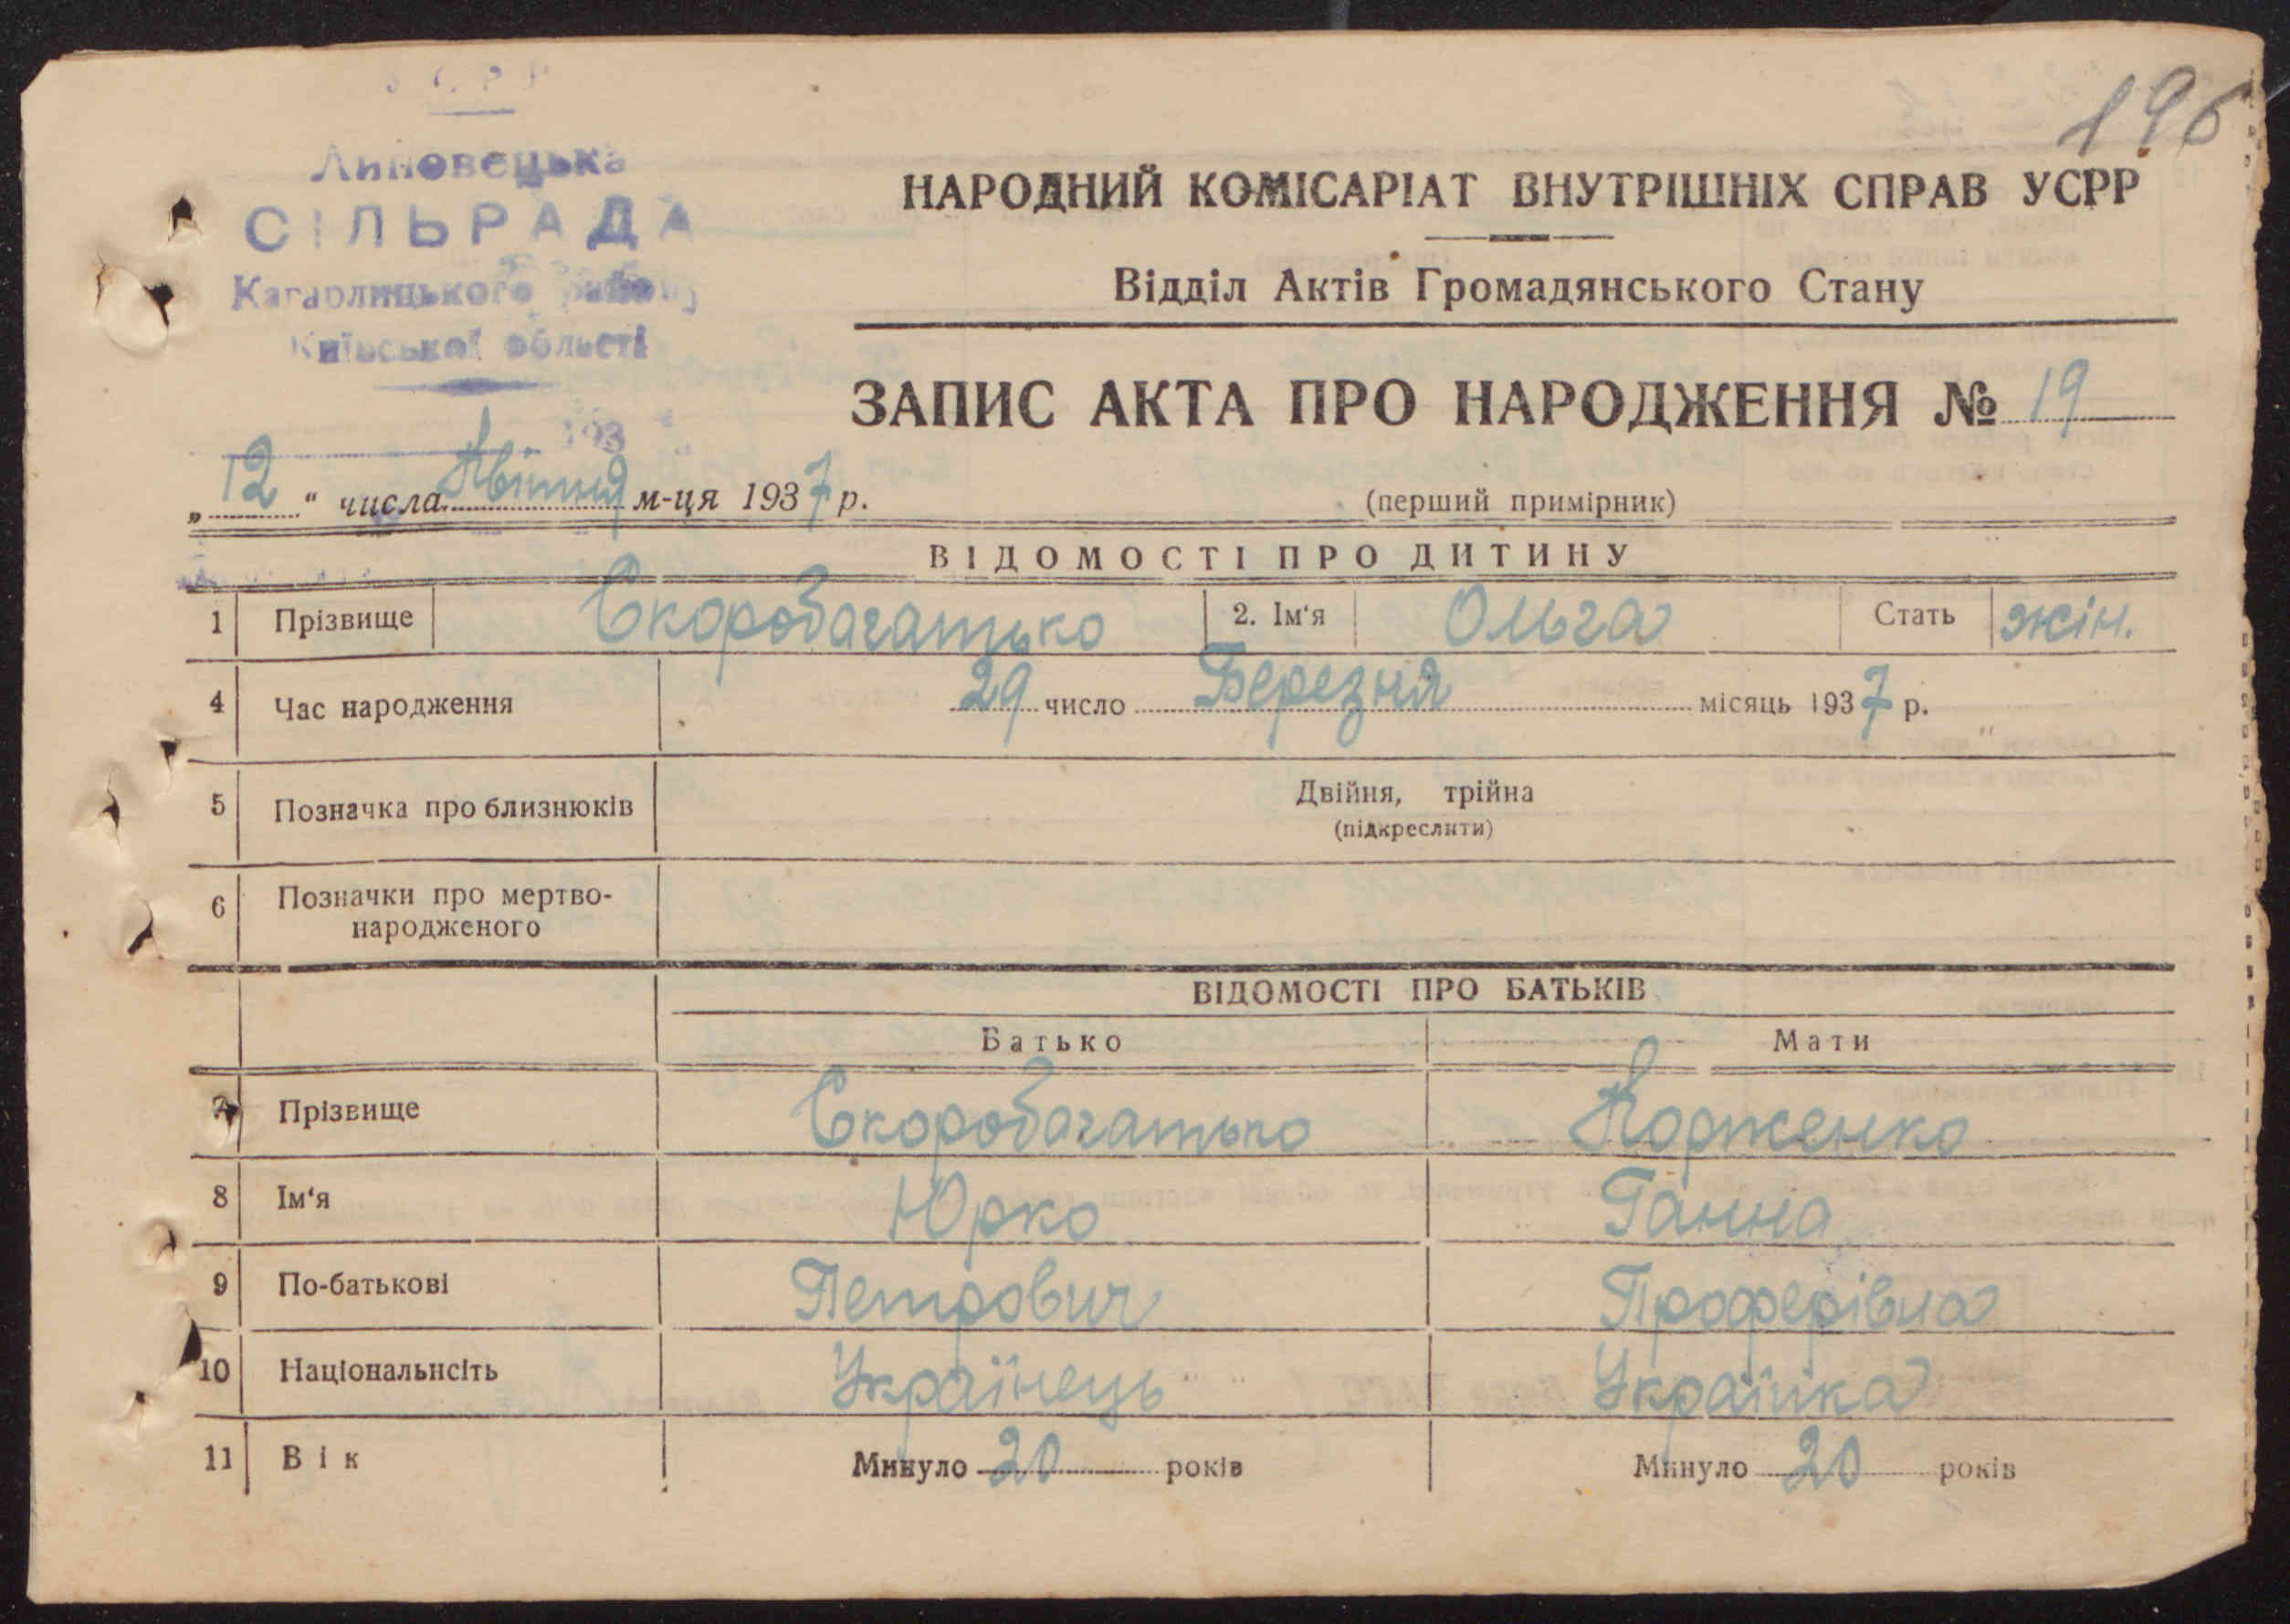 196
УСРР
Линовецька
СІЛЬРАДА
Кагарлицького району
Київської області
193
НАРОДНИЙ КОМІСАРІАТ ВНУТРІШНІХ СПРАВ УСРР
Відділ Актів Громадянського Стану
ЗАПИС АКТА ПРО НАРОДЖЕННЯ № 19
„12“ числа Квітня м-ця 1937 р.
(перший примірник)
ВІДОМОСТІ ПРО ДИТИНУ
1 Прізвище Скоробагатько 2. Ім'я Ольга Стать жін.
4 Час народження 29 число Березня місяць 1937 р.
5 Позначка про близнюків Двійня, трійна
(підкреслити)
6 Позначки про мертво-
народженого
ВІДОМОСТІ ПРО БАТЬКІВ
Батько Мати
7 Прізвище Скоробагатько Корженко
8 Ім'я Юрко Ганна
9 По-батькові Петрович Проферівна
10 Національнсіть Українець Українка
11 Вік Минуло 20 років Минуло 20 років